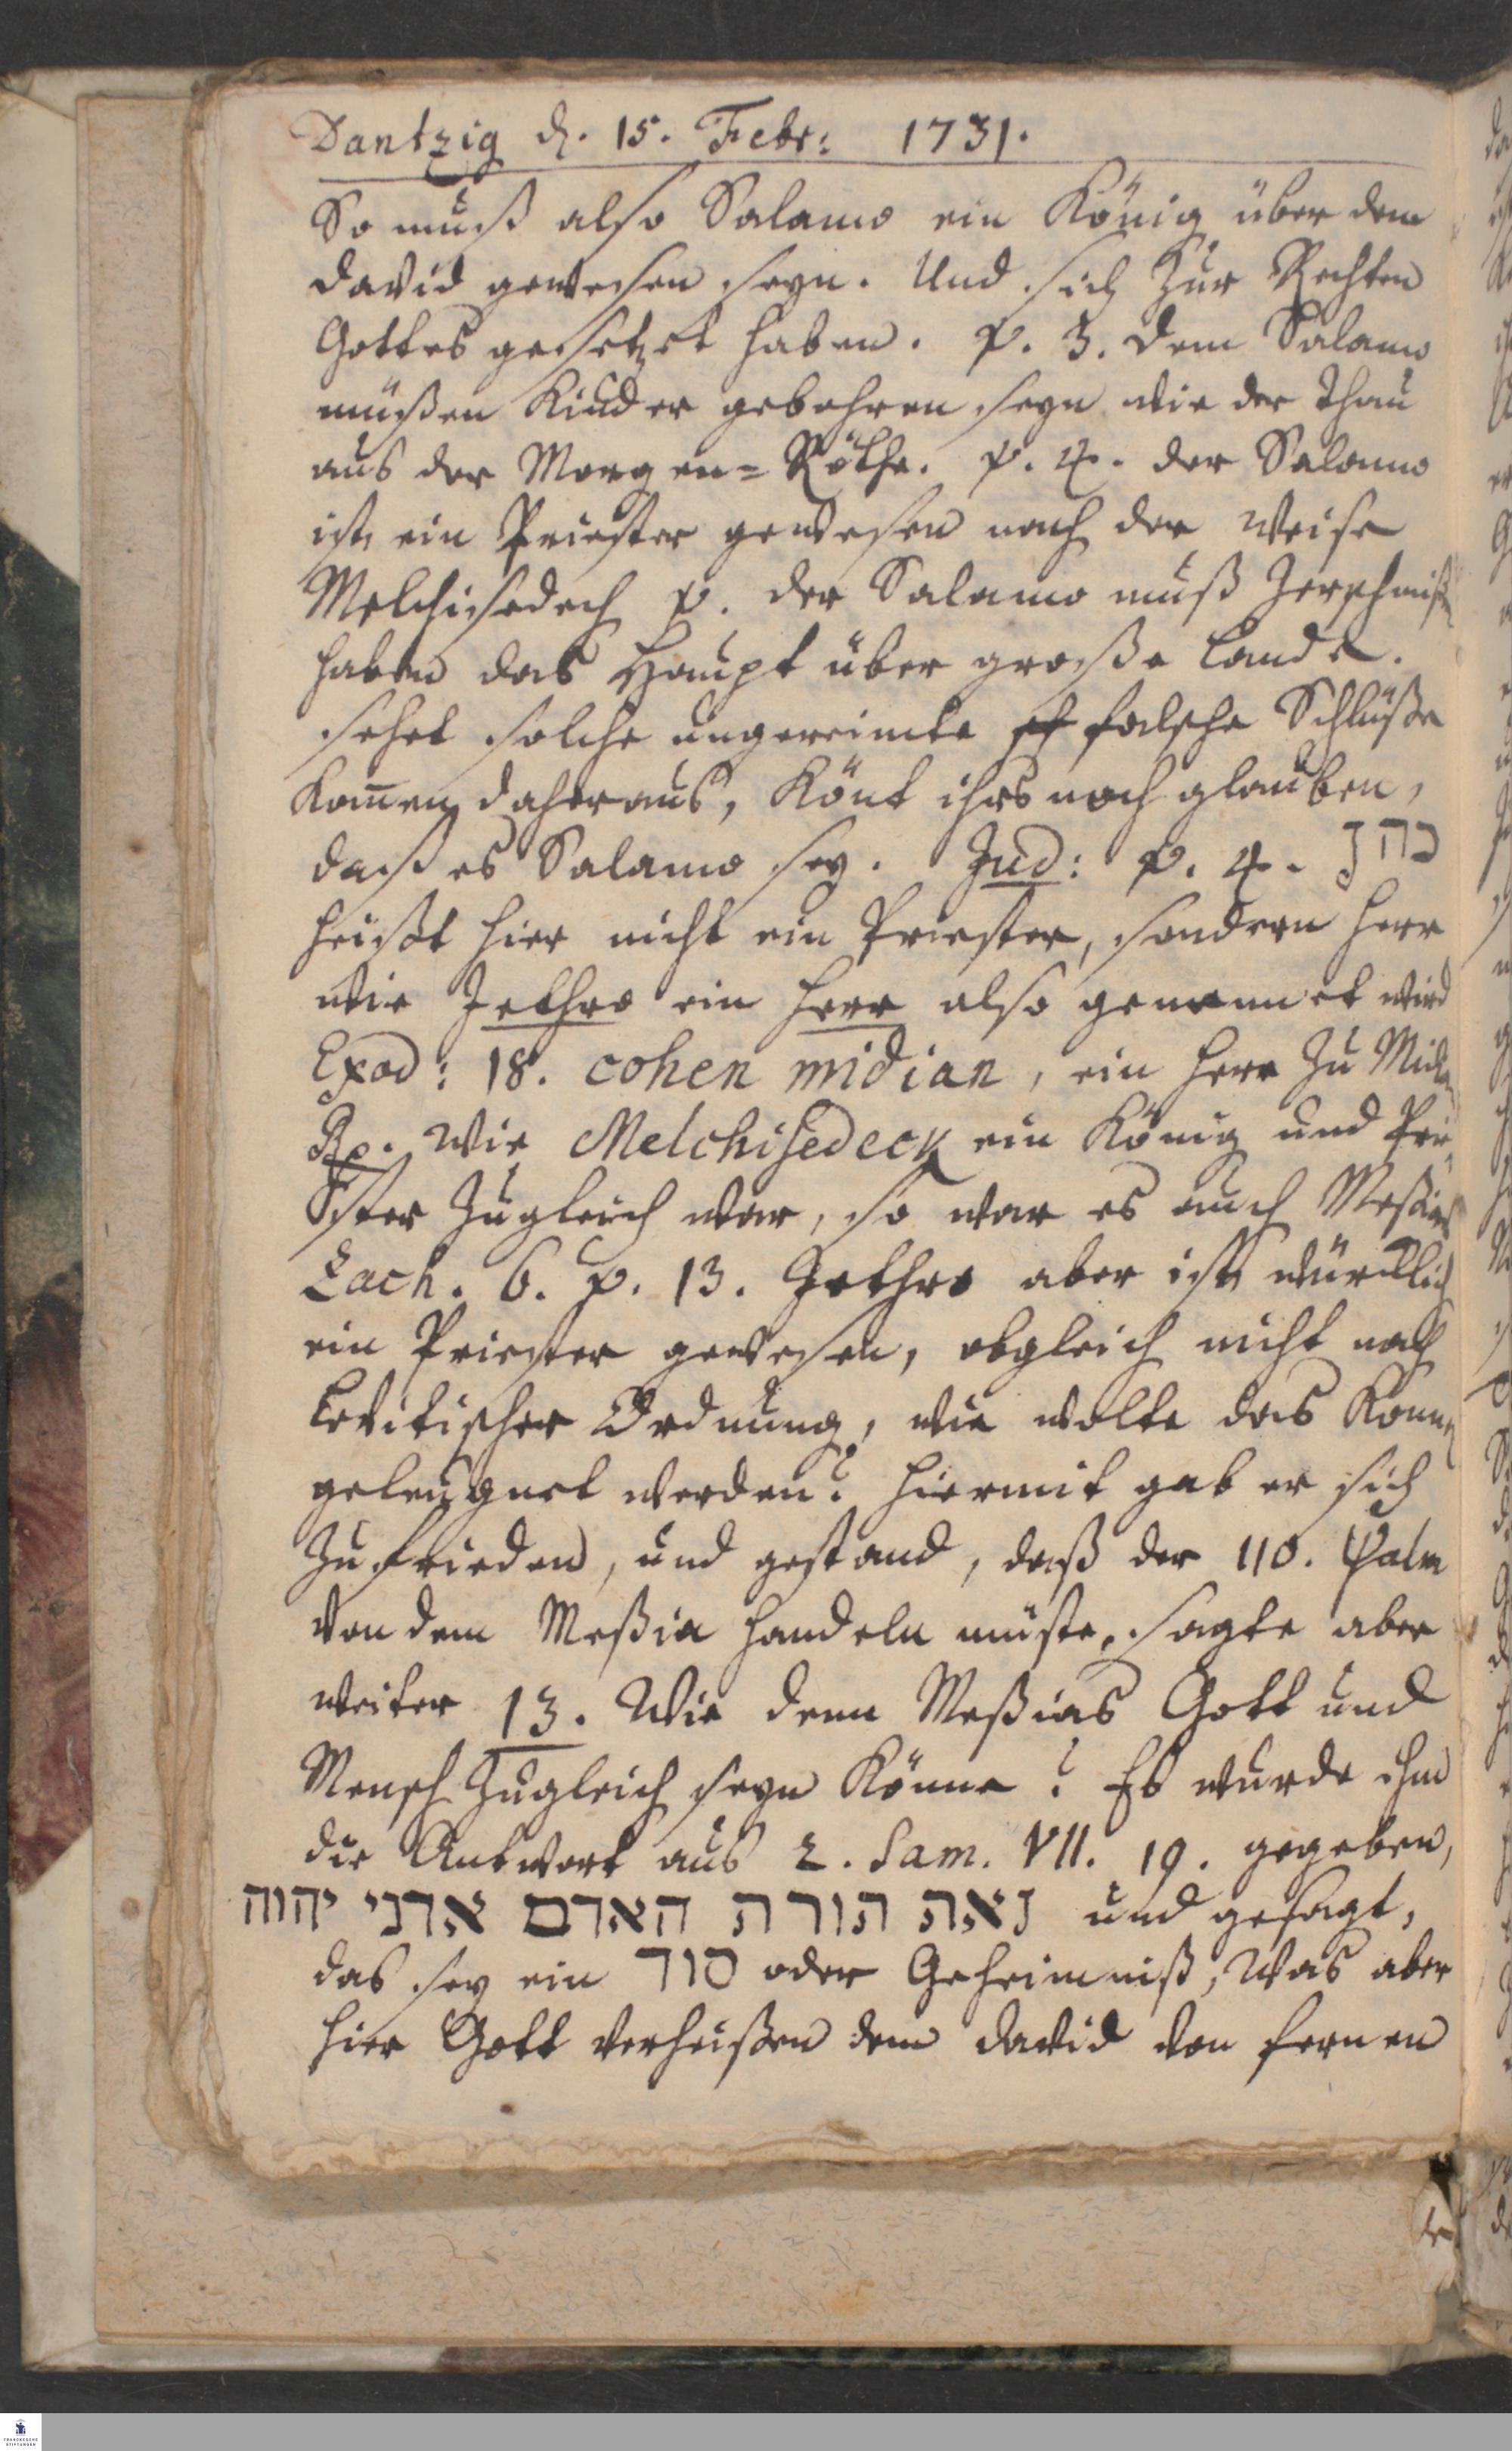 Dantzig d. 15. Febr: 1731.
So muß also Salamo ein König über dem
David gewesen seyn. Und sich zur Rechten
Gottes gesetzet haben. v. 3. dem Salamo
müßen Kinder gebohren seyn wie der Thau
aus der Morgen-Röthe. v. 4. der Salamo
ist ein Priester gewesen nach der Weise
Melchisedech v. der Salamo muß zerschmißen
haben das Haupt über große Lande.
sehet solche ungereimte falsche Schlüße
kom̅en daheraus, könt ihrs noch glauben,
daß es Salamo sey. Jud: v. 4. כהן
heißt hier nicht ein Priester, sondern Herr
wie Jethro ein Herr also genennet wird
Exod: 18. cohen midian, ein Herr zu Midian
Rp. Wie Melchisedeck ein König und Prie-
ster zugleich war, so war es auch Meßias
Zach. 6. v. 13. Jethro aber ist würcklich
ein Priester gewesen, obgleich nicht nach
Levitischer Ordnung, wie wolte das können
geleugnet werden? hiermit gab er sich
zufrieden, und gestand, daß der 110. Psalm
von dem Meßia handeln müste, sagte aber
weiter 13. Wie denn Meßias Gott und
Mensch zugleich seyn könne? Es wurde ihm
die Antwort aus 2. Sam. VII. 19. gegeben,
זאת תורת האדם אדני יהוה und gesagt,
das sey ein סוד oder Geheimniß, was aber
hier Gott verheißen dem David von fernen
FRANCKESCHE
STIFTUNGEN